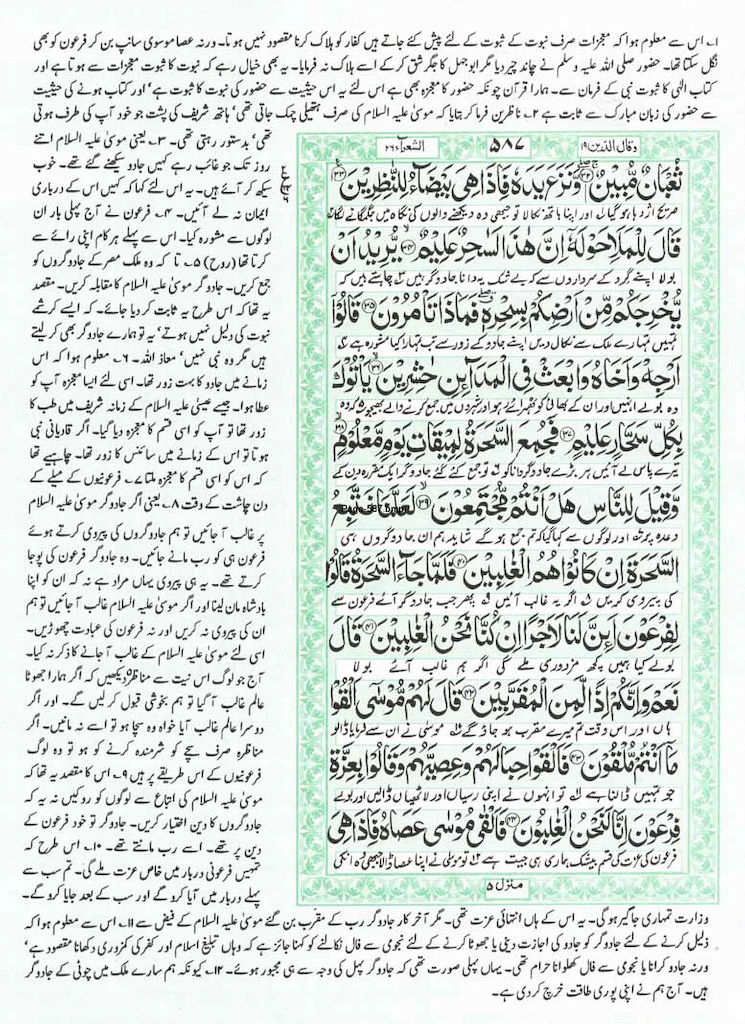 ۱۔ اس سے معلوم ہوا کہ معجزات صرف نبوت کے ثبوت کے لئے پیش کئے جاتے ہیں کفار کو ہلاک کرنا مقصود نہیں ہوتا۔ ورنہ عصا موسوی سانپ بن کر فرعون کو بھی
نگل سکتا تھا۔ حضور صلی اللہ علیہ وسلم نے چاند چیر دیا مگر ابوجہل کا جگر شق کر کے اسے ہلاک نہ فرمایا۔ یہ بھی خیال رہے کہ نبوت کا ثبوت معجزات سے ہوتا ہے اور
کتاب الٰہی کا ثبوت نبی کے فرمان سے۔ ہمارا قرآن چونکہ حضور کا معجزہ بھی ہے اس لئے یہ اس حیثیت سے حضور کی نبوت کا ثبوت ہے' اور کتاب ہونے کی حیثیت
سے حضور کی زبان مبارک سے ثابت ہے ۲۔ ناظرین فرما کر بتایا کہ موسیٰ علیہ السلام کی صرف ہتھیلی چمک جاتی تھی' ہاتھ شریف کی پشت جو خود آپ کی طرف ہوتی
تھی' بدستور رہتی تھی۔ ۳۔ یعنی موسیٰ علیہ السلام اتنے
روز تک جو غائب رہے کہیں جادو سیکھنے گئے تھے۔ خوب
سیکھ کر آئے ہیں۔ یہ اس لئے کہا کہ کہیں اس کے درباری
ایمان نہ لے آئیں۔ ۴۔ فرعون نے آج پہلی بار ان
لوگوں سے مشورہ کیا۔ اس سے پہلے ہر کام اپنی رائے سے
کرتا تھا (روح) ۵۔ تا کہ وہ ملک مصر کے جادوگروں کو
جمع کریں۔ جادوگر موسیٰ علیہ السلام کا مقابلہ کریں۔ مقصد
یہ تھا کہ اس طرح یہ ثابت کر دیا جائے۔ کہ ایسے کرشمے
نبوت کی دلیل نہیں ہوتے' یہ تو ہمارے جادوگر بھی کر لیتے
ہیں مگر وہ نبی نہیں' معاذ اللہ۔ ۶۔ معلوم ہوا کہ اس
زمانے میں جادو کا بہت زور تھا۔ اسی لئے ایسا معجزہ آپ کو
عطا ہوا۔ جیسے عیسیٰ علیہ السلام کے زمانہ شریف میں طب کا
زور تھا تو آپ کو اسی قسم کا معجزہ دیا گیا۔ اگر قادیانی نبی
ہوتا تو اس کے زمانے میں سائنس کا زور تھا۔ چاہیے تھا
کہ اس کو اسی قسم کا معجزہ ملتا ۷۔ فرعونیوں کے میلے کے
دن چاشت کے وقت ۸۔ یعنی اگر جادوگر موسیٰ علیہ السلام
پر غالب آ جائیں تو ہم جادوگروں کی پیروی کرتے ہوئے
فرعون ہی کو رب مانے جائیں۔ وہ جادوگر فرعون کی پوجا
کرتے تھے۔ یہ ہی پیروی یہاں مراد ہے نہ کہ ان کو اپنا
بادشاہ مان لینا اور اگر موسیٰ علیہ السلام غالب آ جائیں تو ہم
ان کی پیروی نہ کریں اور نہ فرعون کی عبادت چھوڑیں۔
اسی لئے موسیٰ علیہ السلام کے غالب آ جانے کا ذکر نہ کیا۔
آج جو لوگ اس نیت سے مناظرہ دیکھیں کہ اگر ہمارا جھوٹا
عالم غالب آ گیا تو ہم بخوشی قبول کریں گے۔ اور اگر
دوسرا عالم غالب آیا خواہ وہ سچا ہو تو اسے نہ مانیں۔ اگر
مناظرہ صرف سچے کو شرمندہ کرنے کو ہو تو وہ لوگ
فرعونیوں کے اس طریقے پر ہیں ۹۔ اس کا مقصد یہ تھا کہ
موسیٰ علیہ السلام کی اتباع سے لوگوں کو روکیں نہ یہ کہ
جادوگروں کا دین اختیار کریں۔ جادوگر تو خود فرعون کے
دین پر تھے۔ اسے رب مانتے تھے۔ ۱۰۔ اس طرح کہ
تمہیں فرعونی دربار میں خاص عزت ملے گی۔ تم سب سے
پہلے دربار میں آیا کرو گے اور سب کے بعد جایا کرو گے۔
وقال الذین ۱۹ ۵۸۷ الشعراء ۲۶
ثُعْبَانٌ مُّبِينٌ ﴿۳۲﴾ وَّنَزَعَ يَدَهٗ فَاِذَا هِيَ بَيْضَآءُ لِلنّٰظِرِيْنَ ﴿۳۳﴾
صریح اژدہا ہو گیا اور اپنا ہاتھ نکالا تو جبھی وہ دیکھنے والوں کی نگاہ میں جگمگانے لگا
قَالَ لِلْمَلَاِ حَوْلَهٗٓ اِنَّ هٰذَا لَسٰحِرٌ عَلِيْمٌ ﴿۳۴﴾ يُّرِيْدُ اَنْ
بولا اپنے گرد کے سرداروں سے کہ بے شک یہ دانا جادوگر ہیں چاہتے ہیں کہ
يُّخْرِجَكُمْ مِّنْ اَرْضِكُمْ بِسِحْرِهٖ فَمَاذَا تَاْمُرُوْنَ ﴿۳۵﴾ قَالُوْٓا
تمہیں تمہارے ملک سے نکال دیں اپنے جادو کے زور سے تب تمہارا کیا مشورہ ہے
اَرْجِهْ وَاَخَاهُ وَابْعَثْ فِي الْمَدَآئِنِ حٰشِرِيْنَ ﴿۳۶﴾ يَاْتُوْكَ
وہ بولے انہیں اور ان کے بھائی کو ٹھہرائے رہو اور شہروں میں جمع کرنے والے بھیجو کہ وہ
بِكُلِّ سَحَّارٍ عَلِيْمٍ ﴿۳۷﴾ فَجُمِعَ السَّحَرَةُ لِمِيْقَاتِ يَوْمٍ مَّعْلُوْمٍ ﴿۳۸﴾
تیرے پاس لے آئیں ہر بڑے جادوگر دانا کو تو جمع کئے گئے جادوگر ایک مقررہ دن کے
وَّقِيْلَ لِلنَّاسِ هَلْ اَنْتُمْ مُّجْتَمِعُوْنَ ﴿۳۹﴾ لَعَلَّنَا نَتَّبِعُ
Page-587.bmp
وعدہ پر اور لوگوں سے کہا گیا کہ تم جمع ہو گے شاید ہم ان جادوگروں ہی
السَّحَرَةَ اِنْ كَانُوْا هُمُ الْغٰلِبِيْنَ ﴿۴۰﴾ فَلَمَّا جَآءَ السَّحَرَةُ قَالُوْا
کی پیروی کریں اگر یہ غالب آئیں پھر جب جادوگر آئے فرعون سے
لِفِرْعَوْنَ اَئِنَّ لَنَا لَاَجْرًا اِنْ كُنَّا نَحْنُ الْغٰلِبِيْنَ ﴿۴۱﴾ قَالَ
بولے کیا ہمیں کچھ مزدوری ملے گی اگر ہم غالب آئے بولا
نَعَمْ وَاِنَّكُمْ اِذًا لَّمِنَ الْمُقَرَّبِيْنَ ﴿۴۲﴾ قَالَ لَهُمْ مُّوْسٰٓى اَلْقُوْا
ہاں اور اس وقت تم میرے مقرب ہو جاؤ گے موسیٰ نے ان سے فرمایا ڈالو
مَآ اَنْتُمْ مُّلْقُوْنَ ﴿۴۳﴾ فَاَلْقَوْا حِبَالَهُمْ وَعِصِيَّهُمْ وَقَالُوْا بِعِزَّةِ
جو تمہیں ڈالنا ہے تو انہوں نے اپنی رسیاں اور لاٹھیاں ڈالیں اور بولے
فِرْعَوْنَ اِنَّا لَنَحْنُ الْغٰلِبُوْنَ ﴿۴۴﴾ فَاَلْقٰى مُوْسٰى عَصَاهُ فَاِذَا هِيَ
فرعون کی عزت کی قسم بیشک ہماری ہی جیت ہے تو موسیٰ نے اپنا عصا ڈالا جبھی وہ انکی
منزل ۵
وزارت تمہاری جاگیر ہوگی۔ یہ اس کے ہاں انتہائی عزت تھی۔ مگر آخر کار جادوگر رب کے مقرب بن گئے موسیٰ علیہ السلام کے فیض سے ۱۱۔ اس سے معلوم ہوا کہ
ذلیل کرنے کے لئے جادوگر کو جادو کی اجازت دینی یا جھوٹا کرنے کے لئے نجومی سے فال نکالنے کو کہنا جائز ہے کہ وہاں تبلیغ اسلام اور کفر کی کمزوری دکھانا مقصود ہے'
ورنہ جادو کرانا یا نجومی سے فال کھلوانا حرام تھی۔ یہاں پہلی صورت تھی کہ جادوگر پہل کی وجہ سے ہی مجبور ہوئے۔ ۱۲۔ کیونکہ ہم سارے ملک میں چوٹی کے جادوگر
ہیں۔ آج ہم نے اپنی پوری طاقت خرچ کر دی ہے۔